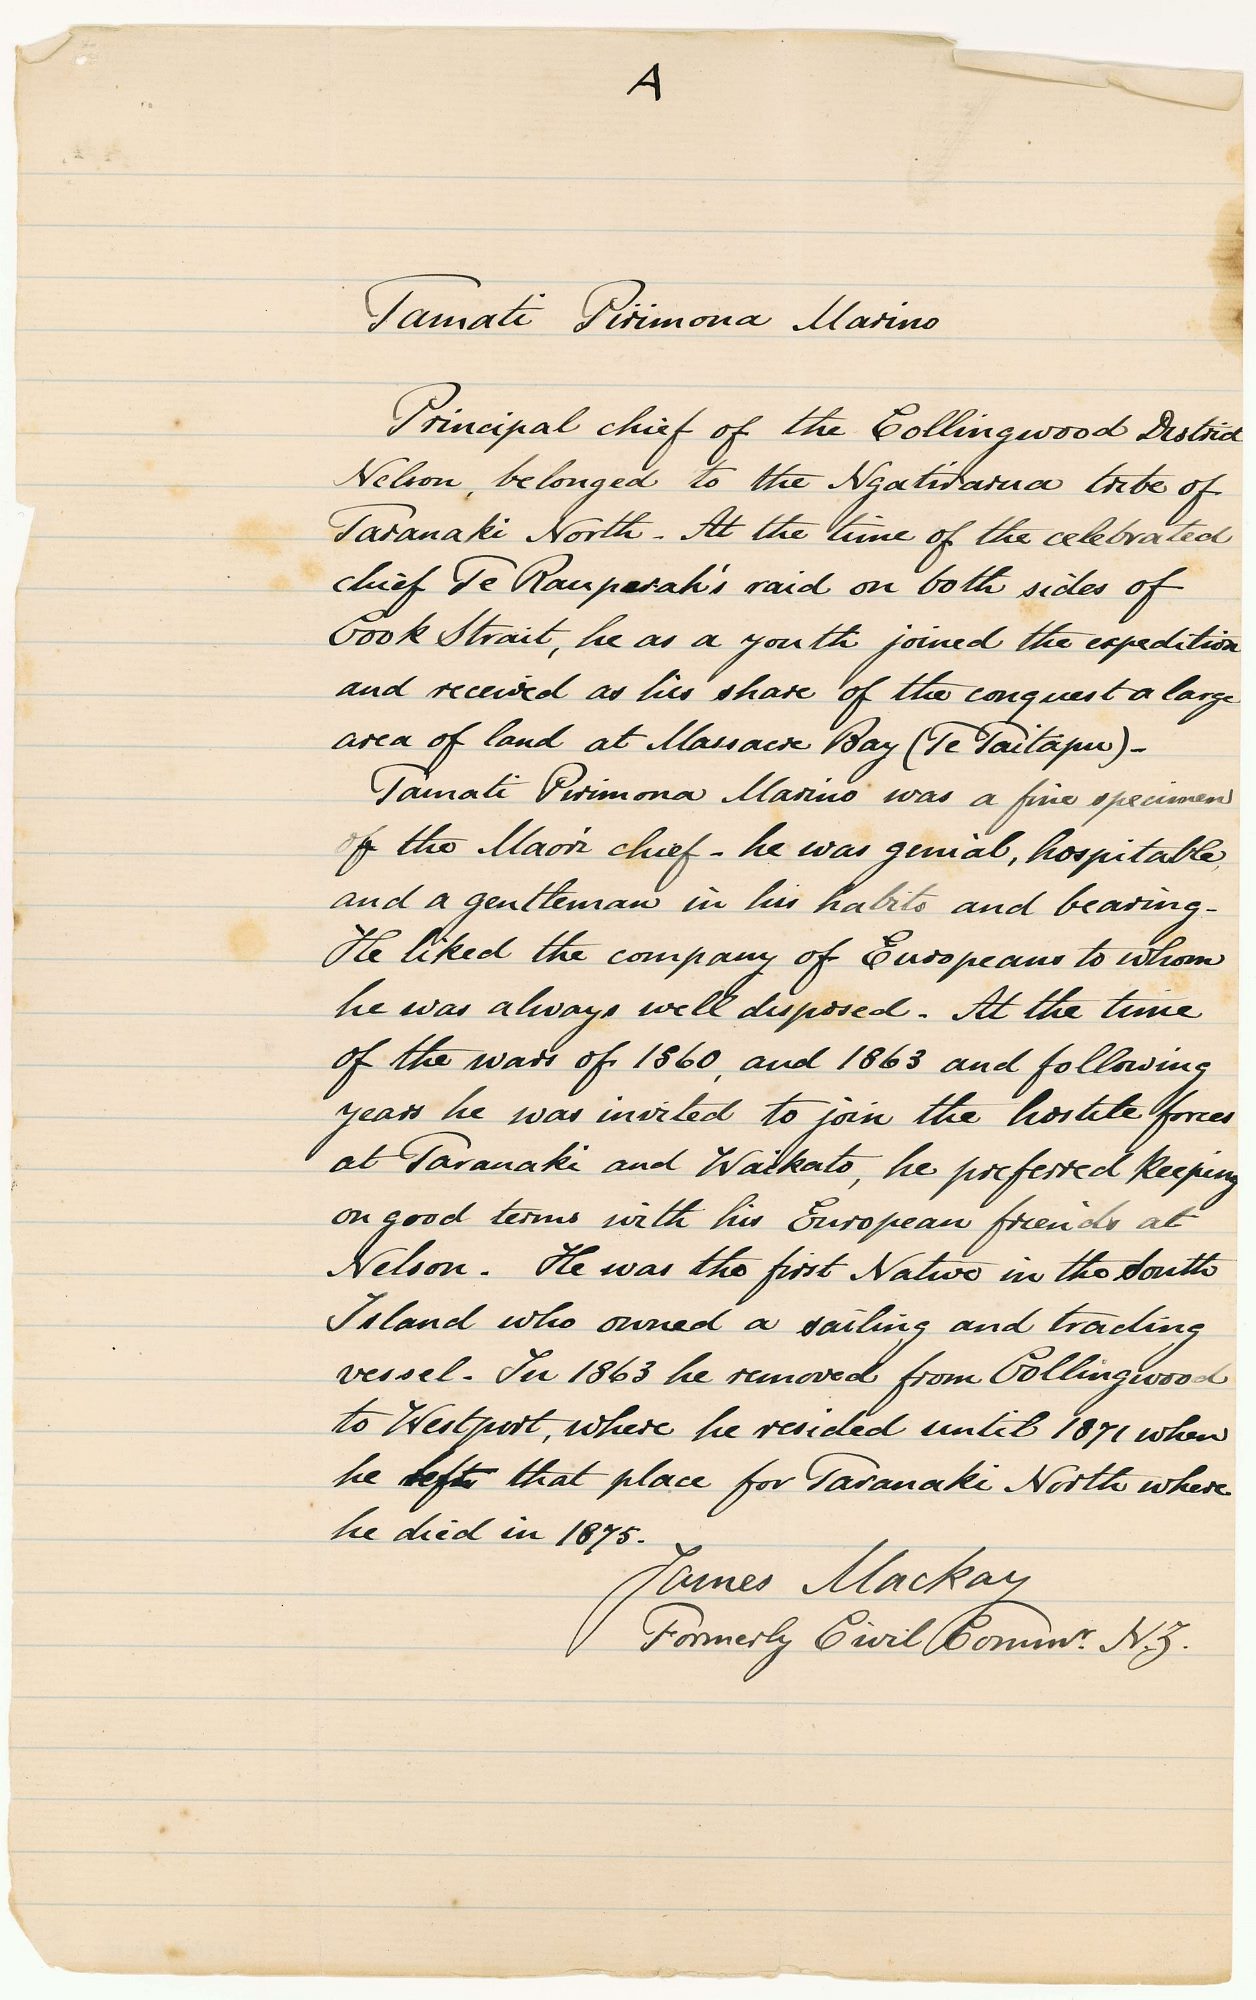 A
Tamati Pirimona Marino
Principal chief of the Collingwood District
Nelson, belonged to the Ngatirarua tribe of
Taranaki North - At the time of the celebrated
chief Te Rauperah's raid on both sides of
Cook Strait, he as a youth joined the expedition
and received as his share of the conquest a large
area of land at Massacre Bay (Te Taitapu) -
Tamati Pirimona Marino was a fine specimen
of the Maori chief - he was genial, hospitable,
and a gentleman in his habits and bearing -
He liked the company of Europeans to whom
he was always well disposed - At the time
of the wars of 1860, and 1863 and following
years he was invited to join the hostile forces
at Taranaki and Waikato, he preferred keeping
on good terms with his European friends at
Nelson - He was the first Native in the South
Island who owned a sailing and trading
vessel - In 1863 he removed from Collingwood
to Westport, where he resided until 1871 when
he left that place for Taranaki North where
he died in 1875.
James Mackay
Formerly Civil Commr. N.Z.